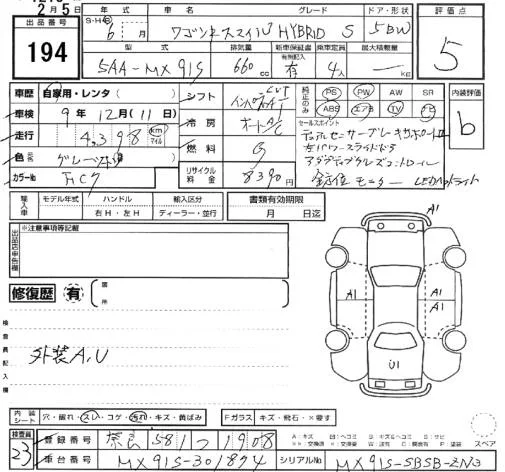 2月5日
出品番号
194
年式 車名 グレード ドア・形状
S・H・R 6 月 ワゴンRスマイル HYBRID S 5BW
型式 排気量 新車保証書 有無記入 乗車定員 最大積載量
5AA-MX91S 660 cc 有 4人 kg
評価点
5
車歴 自家用・レンタ( )
車検 9年12月(11日)
走行 4,398 km マイル
色 元色
カラーNo
シフト CVT インパネAT
冷房 オートA/C
燃料 G
リサイクル料金 8390円
純正のみ PS PW AW SR
ABS エアB TV
セールスポイント
デュアルセンサーブレーキサポートII
左パワースライドドア
アダプティブクルーズコントロール
全方位モニター LEDヘッドライト
内装評価
b
輸入車 モデル年式 ハンドル 輸入区分
右H・左H ディーラー・並行
書類有効期限
月 日迄
出品店申告欄
※注意事項等記載
修復歴 有 箇所
検査員記入欄
外装A,U
A1
A1
A1
U1
内装シート 穴・破れ・スレ・コゲ・汚れ・キズ・黄ばみ
Fガラス キズ・飛石・×要す
検査員
23
登録番号 奈良 581 つ 1908
車台番号 MX91S-301874
シリアルNo MX91S-SBSB-ZN3
スペア